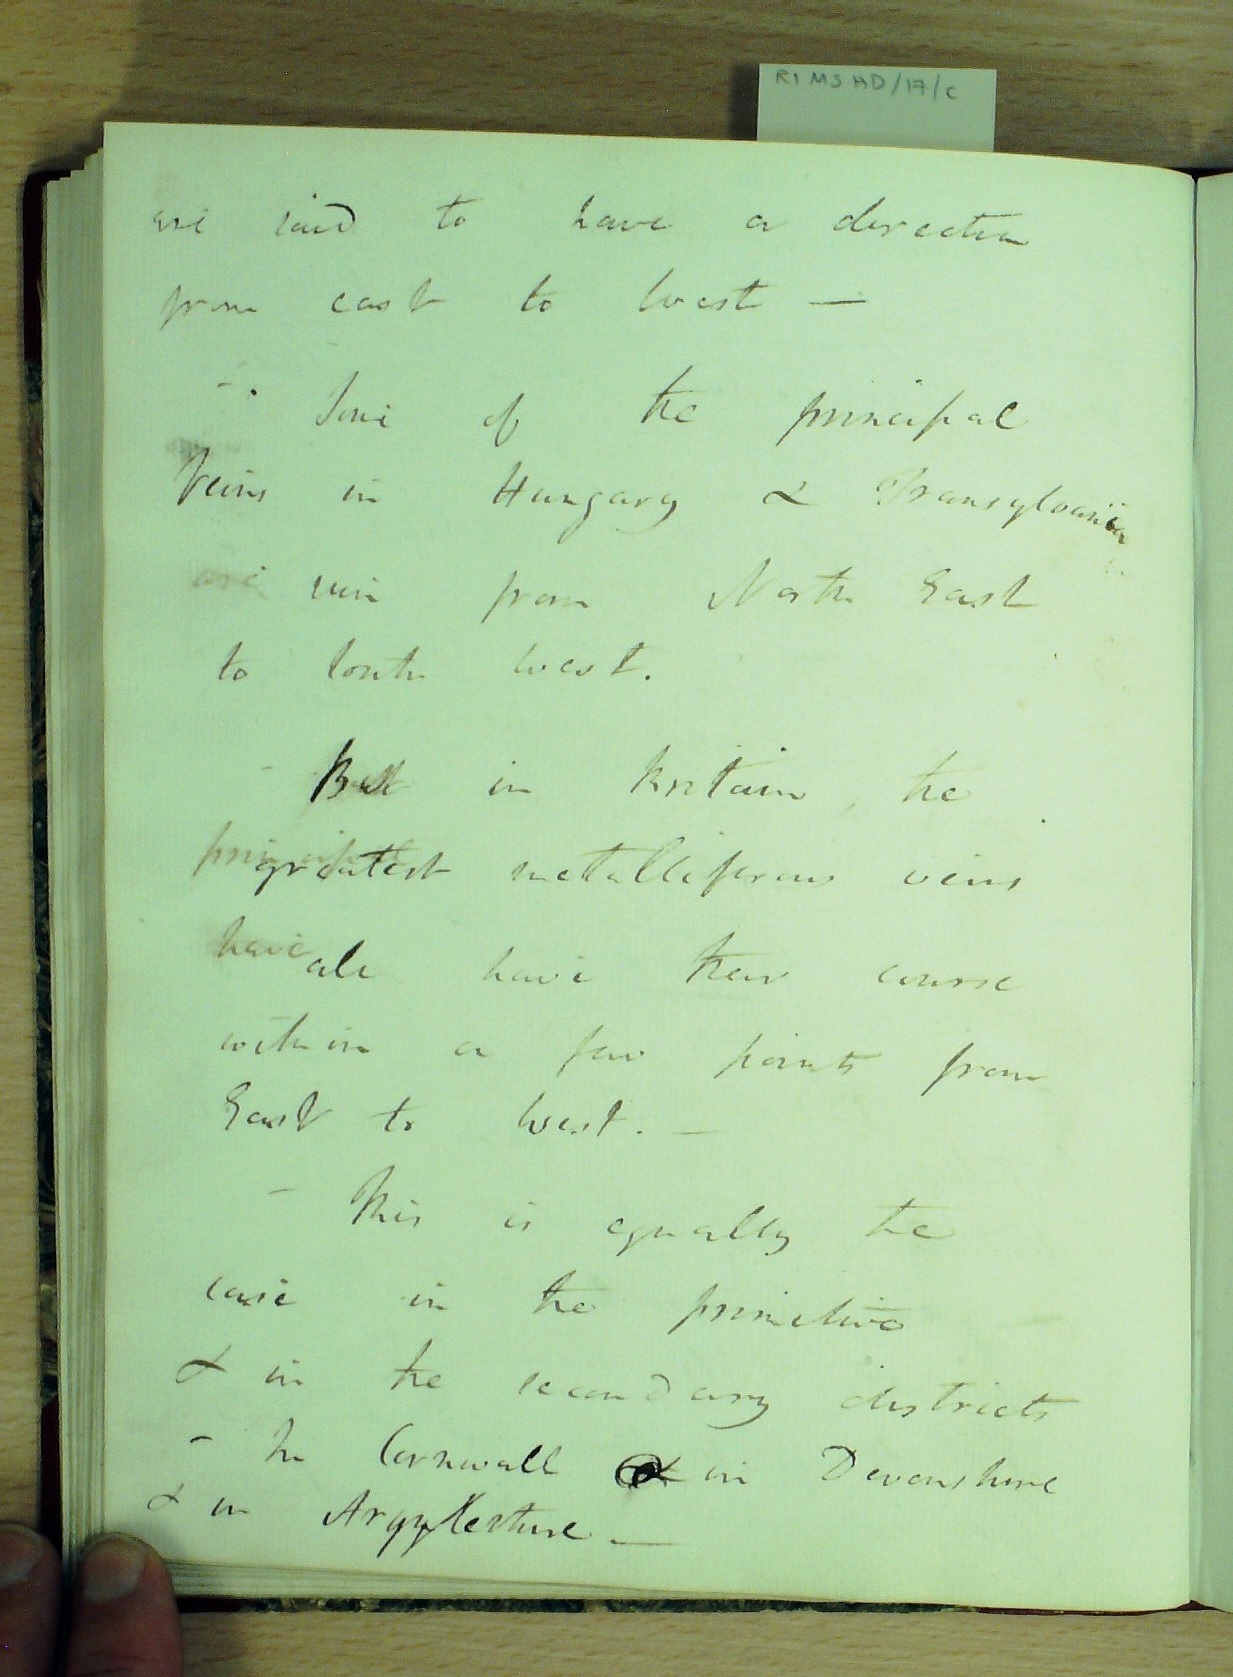 RI MS HD/17/C
are said to have a direction
from east to West —
- . Some of the principal
Veins in Hungary & Transylvania
are run from North East
to South West.
- But in Britain, the
principal greatest metalliferous veins
have all have their course
within a few points from
East to West. —
- This is equally the
case in the primitive
& in the secondary districts
- In Cornwall & in Devonshire
& in Argylleshire —